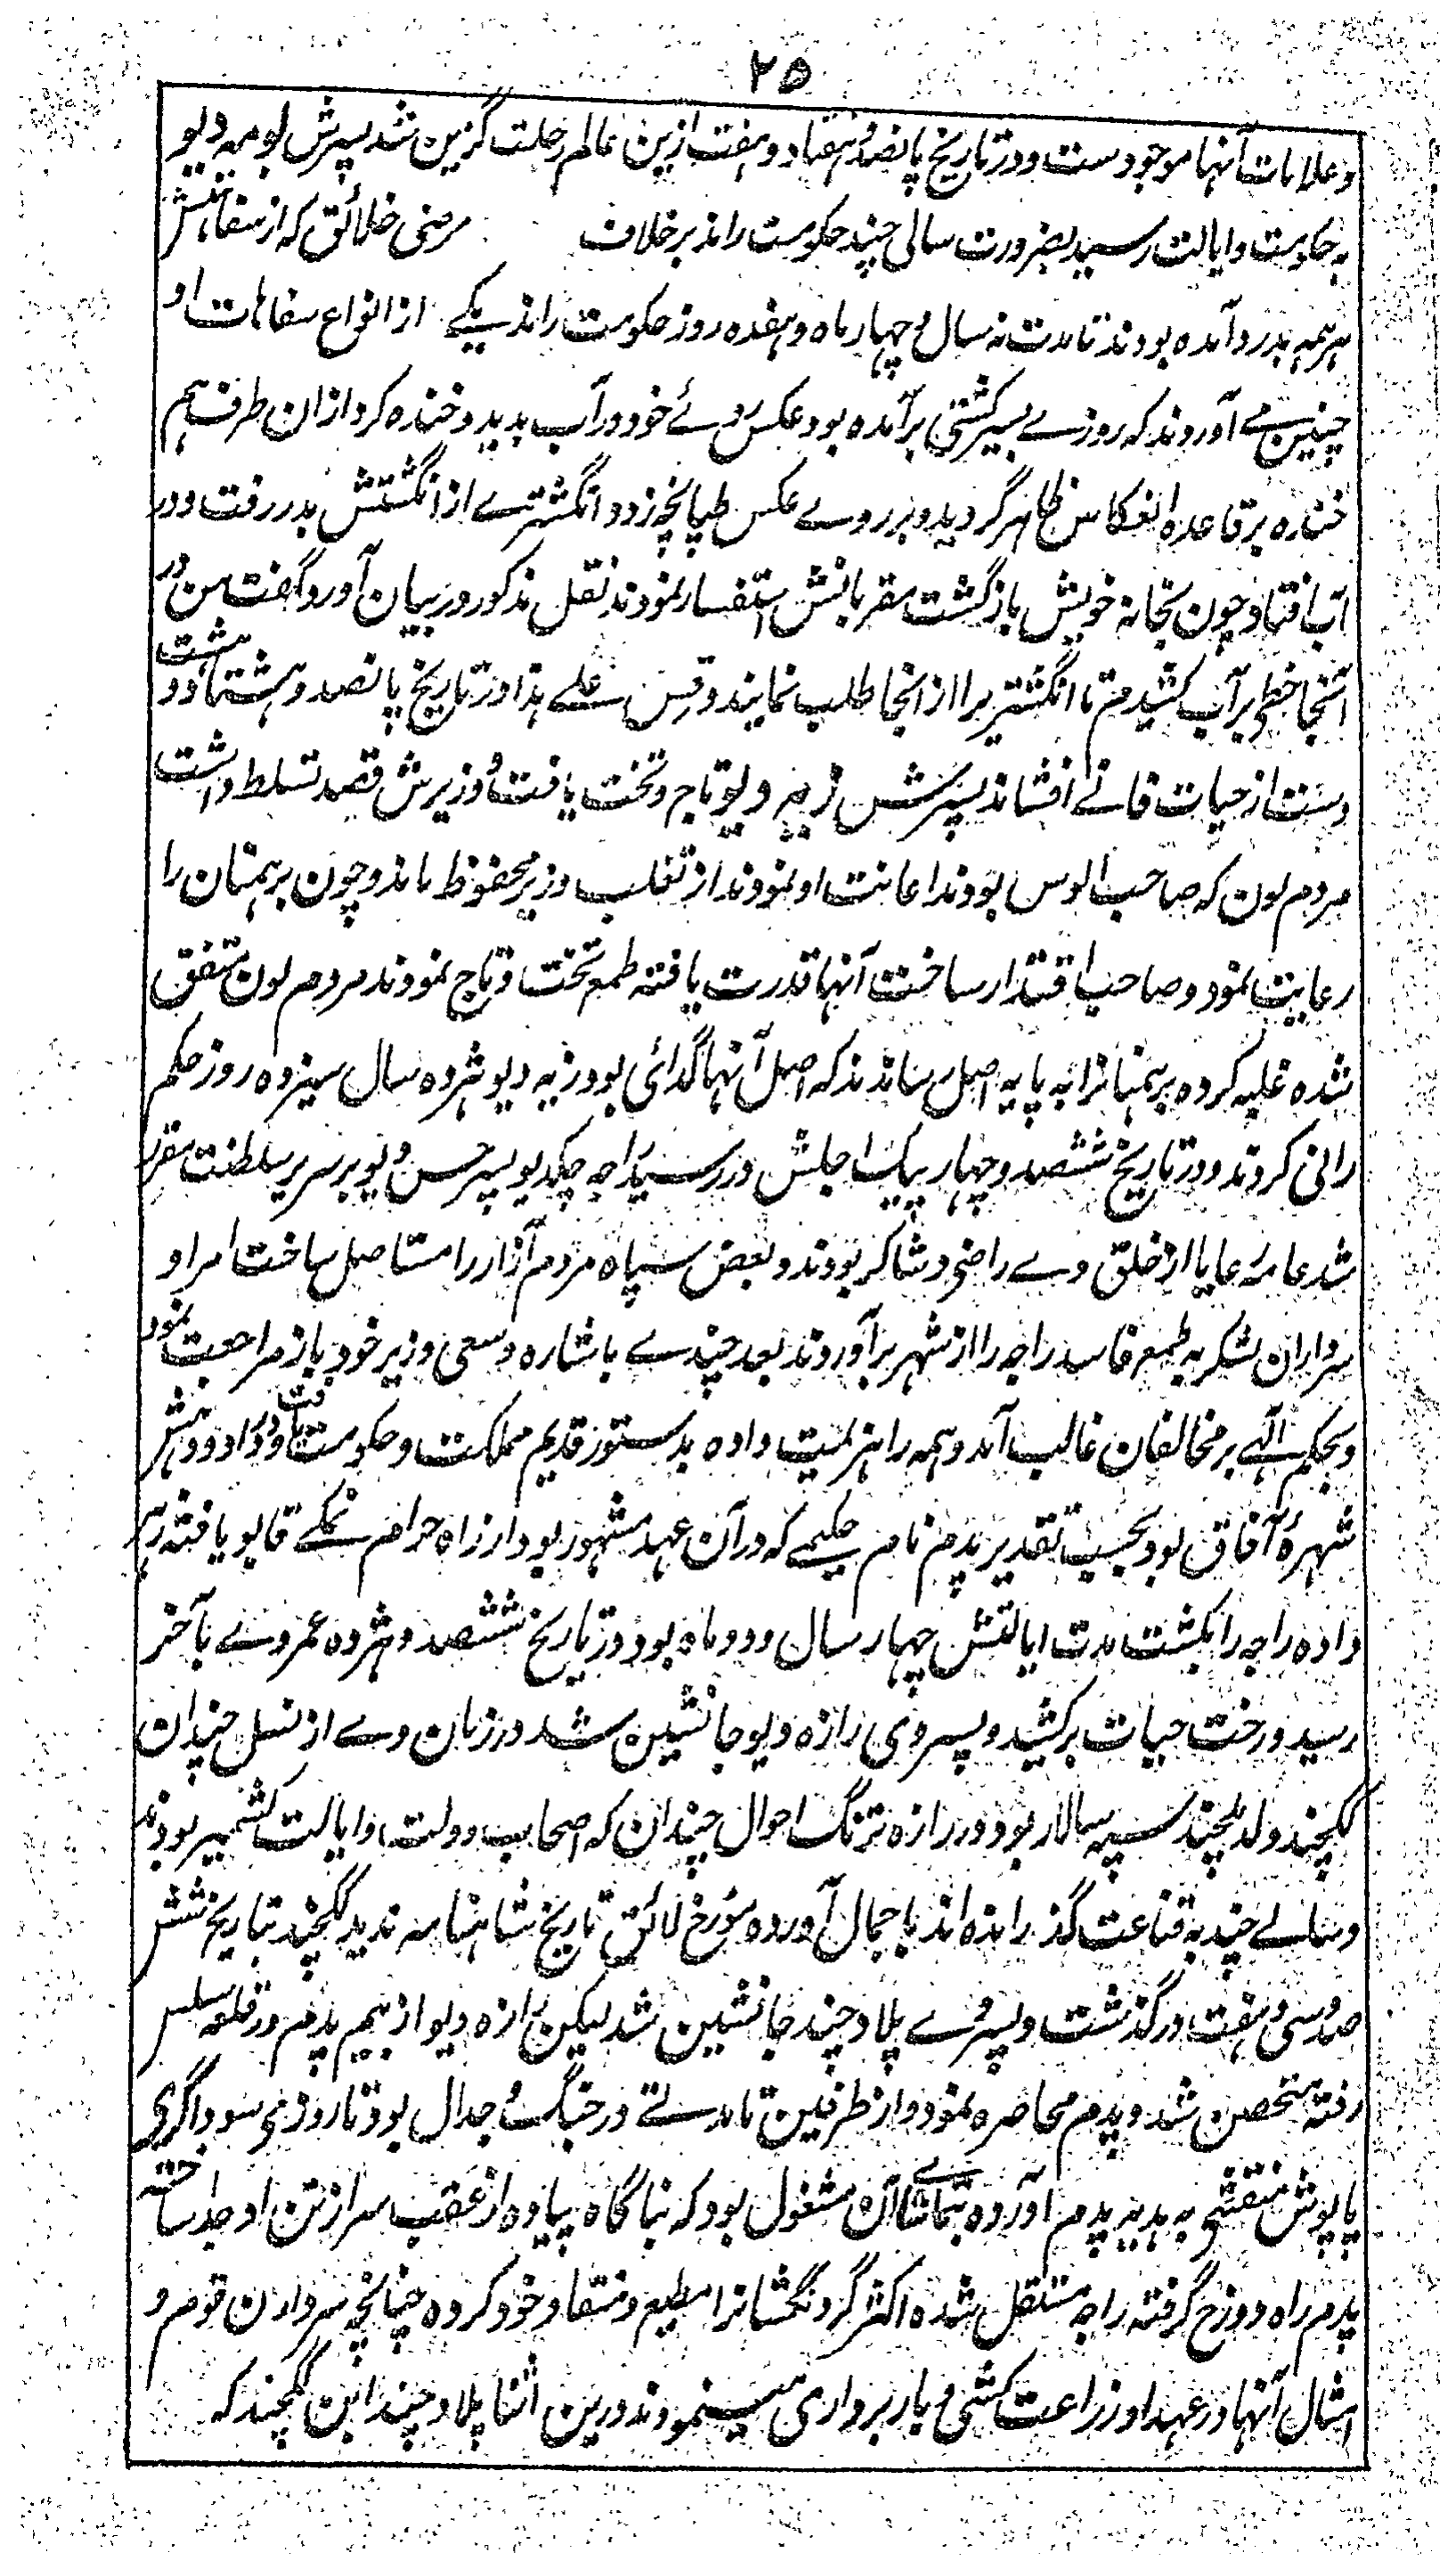 ۲۵
و علامات آنها موجودست و در تاریخ پانصد و هفتاد و هفت ازین عالم رحلت گزین شد پسرش بومه دیو
به حکومت و ایالت رسید بضرورت سالی چند حکومت راند برخلاف مرضی خلائق که از سفاهتش
همه بدرد آمده بودند تا مدت نه سال و چهار ماه و هفده روز حکومت راند یکے از انواع سفاهات او
چنین مے آورند که روزے بسیر کشتی برآمده بود عکس روئے خود در آب بدید و خنده کرد ازان طرف هم
خنده بر قاعده انعکاس ظاهر گردید و بر روے عکس طپانچه زد و انگشترے از انگشتش بدر رفت و در
آب افتاد چون بخانه خویش بازگشت مقربانش استفسار نمودند نقل مذکور در بیان آورد و گفت من در
آنجا خطی بر آب کشیدم تا انگشتریرا از انجا طلب نمایند و قس علے هذا در تاریخ پانصد و هشتاد و هشت
دست از حیات فانے افشاند پسرش زیه دیو تاج و تخت یافت و وزیرش قصد تسلط داشت
مردم لون که صاحب الوس بودند اعانت او نمودند از تغلب وزیر محفوظ ماند و چون برهمنان را
رعایت نمود و صاحب اقتدار ساخت آنها قدرت یافته طمع تخت و تاج نمودند مردم لون متفق
شده غلبه کرده برهمنانرا به پایه اصل رساندند که اصل آنها گدائی بود زیه دیو هژده سال سیزده روز حکم
رانی کردند و در تاریخ ششصد و چهار پیک اجلش در رسید راجه چکدیو پسر حسن دیو بر سریر سلطنت مقرر
شد عامه رعایا از خلق وے راضی و شاکر بودند و بعض سپاه مردم آزار را مستاصل ساخت امرا و
سرداران لشکر به طمع فاسد راجه را از شهر برآوردند بعد چندے باشاره و سعی وزیر خود باز مراجعت نمود
و بحکم الٰهی بر مخالفان غالب آمد و همه را هزیمت داده بدستور قدیم مملکت و حکومت یافت و داد و دهش
شهرهٔ آفاق بود بحسب تقدیر پدم نام حکیمے که در آن عهد مشهور بود از راه حرام نمکے قابو یافته زهر
داده راجه را بکشت مدت ایالتش چهار سال و دو ماه بود و در تاریخ ششصد و هژده عمر وے بآخر
رسید و رخت حیات برکشید و پسر وی رازه دیو جانشین شد در زمان وے از نسل چندان
لکچند ولد بلچند سپه سالار بود و در رازه ترنگ احوال چندان که اصحاب دولت و ایالت کشمیر بودند
و سالے چند به قناعت گذرانده اند باجمال آورده مؤرخ لائق تاریخ شاهنامه ندید لکچند بتاریخ شش
صد و سی و هفت درگذشت و پسر وے بلادچند جانشین شد لیکن رازه دیو از بیم پدم در قلعه سلس
رفته متحصن شد و پدم محاصره نمود و از طرفین تا مدتے در جنگ و جدال بود تا روزی سوداگری
پاپوش منقشی به هدیه پدم آورده بتماشاے آن مشغول بود که بناگاه پیاده از عقب سر از تن او جدا ساخته
پدم راه دوزخ گرفته راجه مستقل شده اکثر گردنکشانرا مطیع و منقاد خود کرده چنانچه سرداران قوم و
امثال آنها در عهد او زراعت کشی و باربرداری مینمودند درین اثنا بلادچند ابن لکچند که